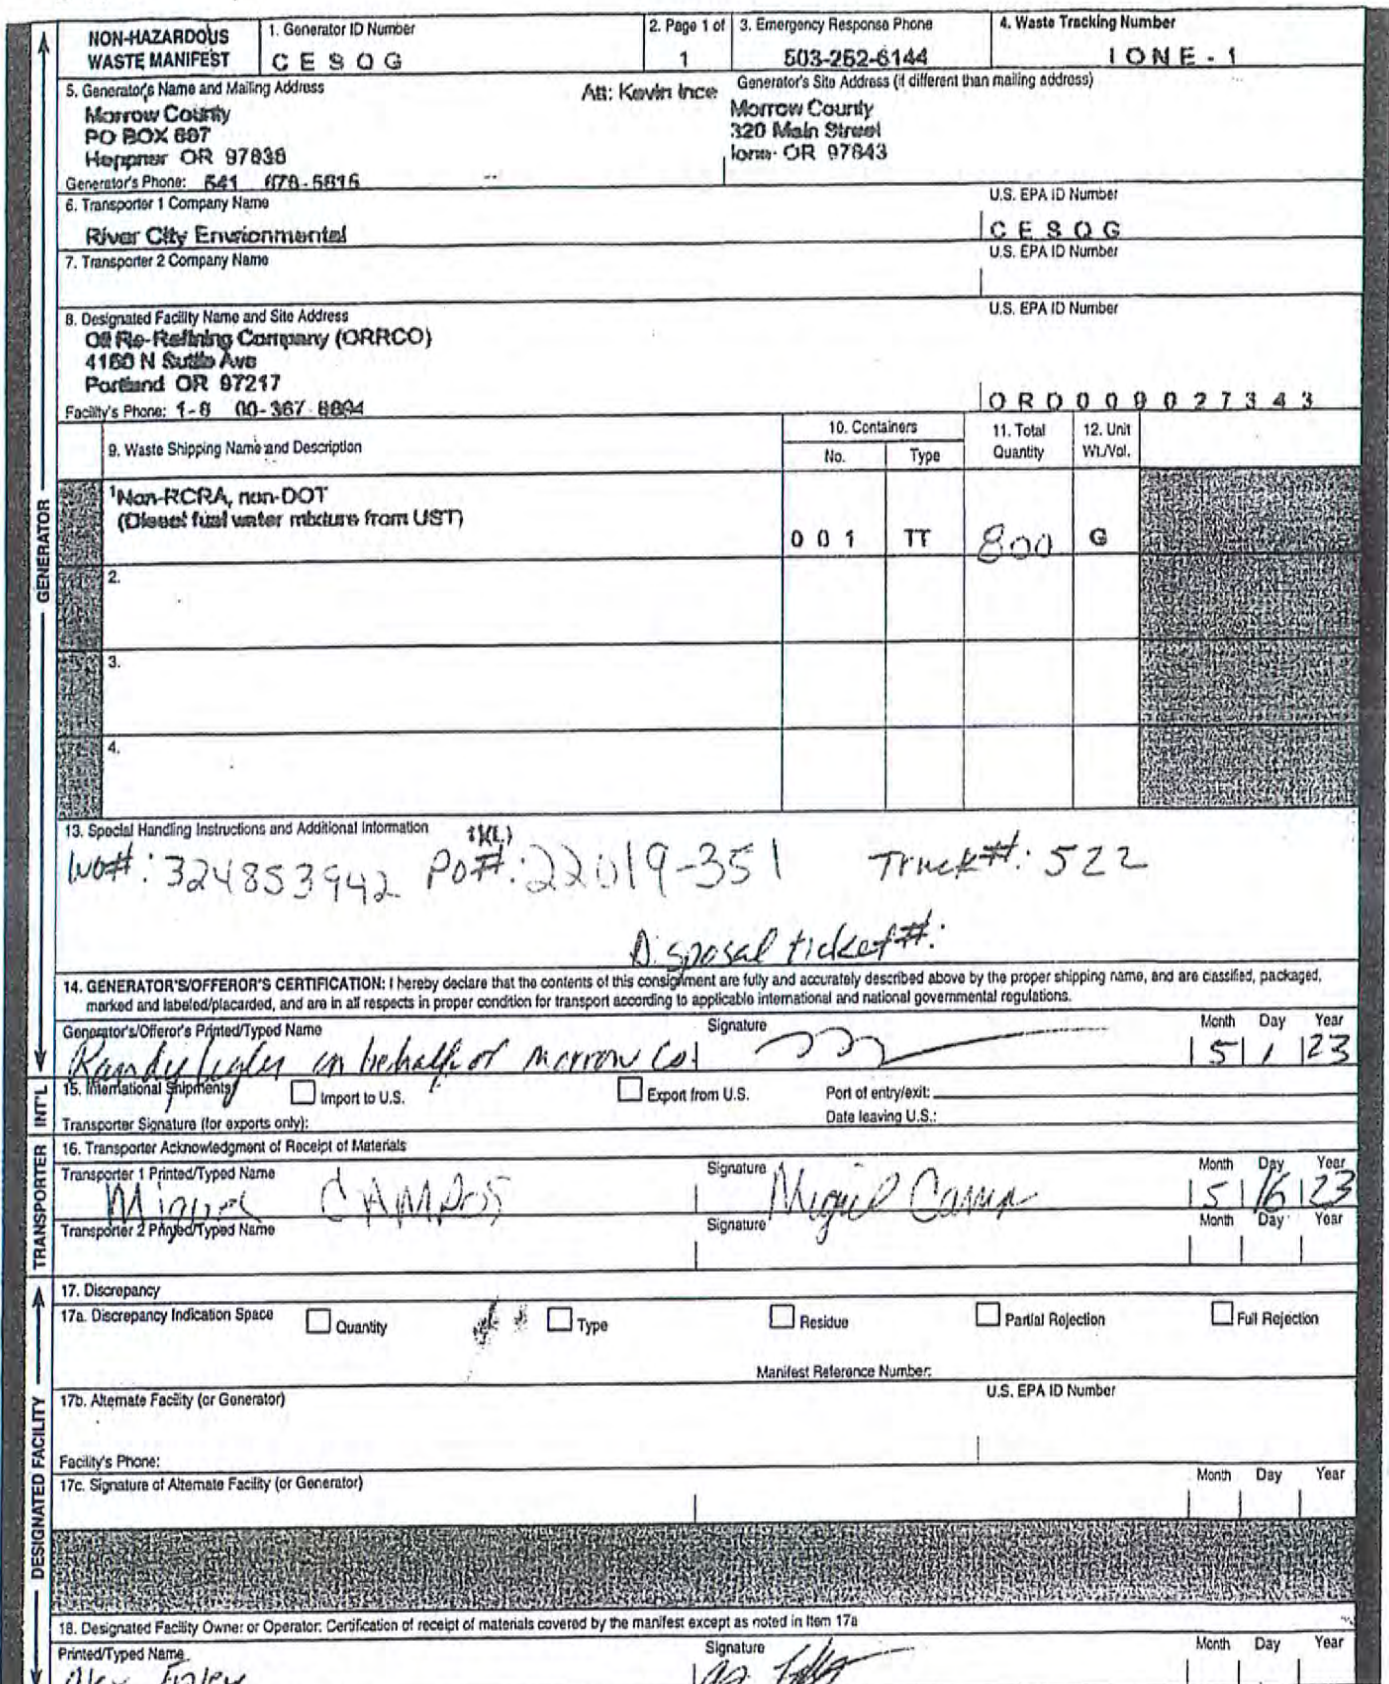 NON-HAZARDOUS WASTE MANIFEST
1. Generator ID Number
CESQG
2. Page 1 of
1
3. Emergency Response Phone
503-252-6144
4. Waste Tracking Number
IONE-1
5. Generator's Name and Mailing Address
Att: Kevin Ince
Morrow County
PO BOX
Heppner OR 97836
Generator's Phone: 541
Generator's Site Address (if different than mailing address)
Morrow County
320 Main Street
Ione OR 97843
6. Transporter 1 Company Name
River City Envrionmental
U.S. EPA ID Number
CESQG
7. Transporter 2 Company Name
U.S. EPA ID Number
8. Designated Facility Name and Site Address
Oil Re-Refining Company (ORRCO)
4150 N Suttle Ave
Portland OR 97217
Facility's Phone:
U.S. EPA ID Number
ORD009027343
9. Waste Shipping Name and Description
10. Containers
No.
Type
11. Total Quantity
12. Unit Wt./Vol.
GENERATOR
1 Non-RCRA, non-DOT
(Diesel fuel water mixture from UST)
001 TT 800 G
2.
3.
4.
13. Special Handling Instructions and Additional Information
WO#: 324853942 PO#: 22019-351 Truck#: 522
Disposal ticket#:
14. GENERATOR'S/OFFEROR'S CERTIFICATION: I hereby declare that the contents of this consignment are fully and accurately described above by the proper shipping name, and are classified, packaged,
marked and labeled/placarded, and are in all respects in proper condition for transport according to applicable international and national governmental regulations.
Generator's/Offeror's Printed/Typed Name
Signature
Month Day Year
Randy on behalf of Morrow Co.
5 1 23
INT'L
15. International Shipments
Import to U.S.
Export from U.S.
Port of entry/exit:
Transporter Signature (for exports only):
Date leaving U.S.:
TRANSPORTER
16. Transporter Acknowledgment of Receipt of Materials
Transporter 1 Printed/Typed Name
Signature
Month Day Year
Miguel CAMPOS
Miguel
5 16 23
Transporter 2 Printed/Typed Name
Signature
Month Day Year
DESIGNATED FACILITY
17. Discrepancy
17a. Discrepancy Indication Space
Quantity
Type
Residue
Partial Rejection
Full Rejection
Manifest Reference Number:
17b. Alternate Facility (or Generator)
U.S. EPA ID Number
Facility's Phone:
17c. Signature of Alternate Facility (or Generator)
Month Day Year
18. Designated Facility Owner or Operator: Certification of receipt of materials covered by the manifest except as noted in Item 17a
Printed/Typed Name
Signature
Month Day Year
Alex